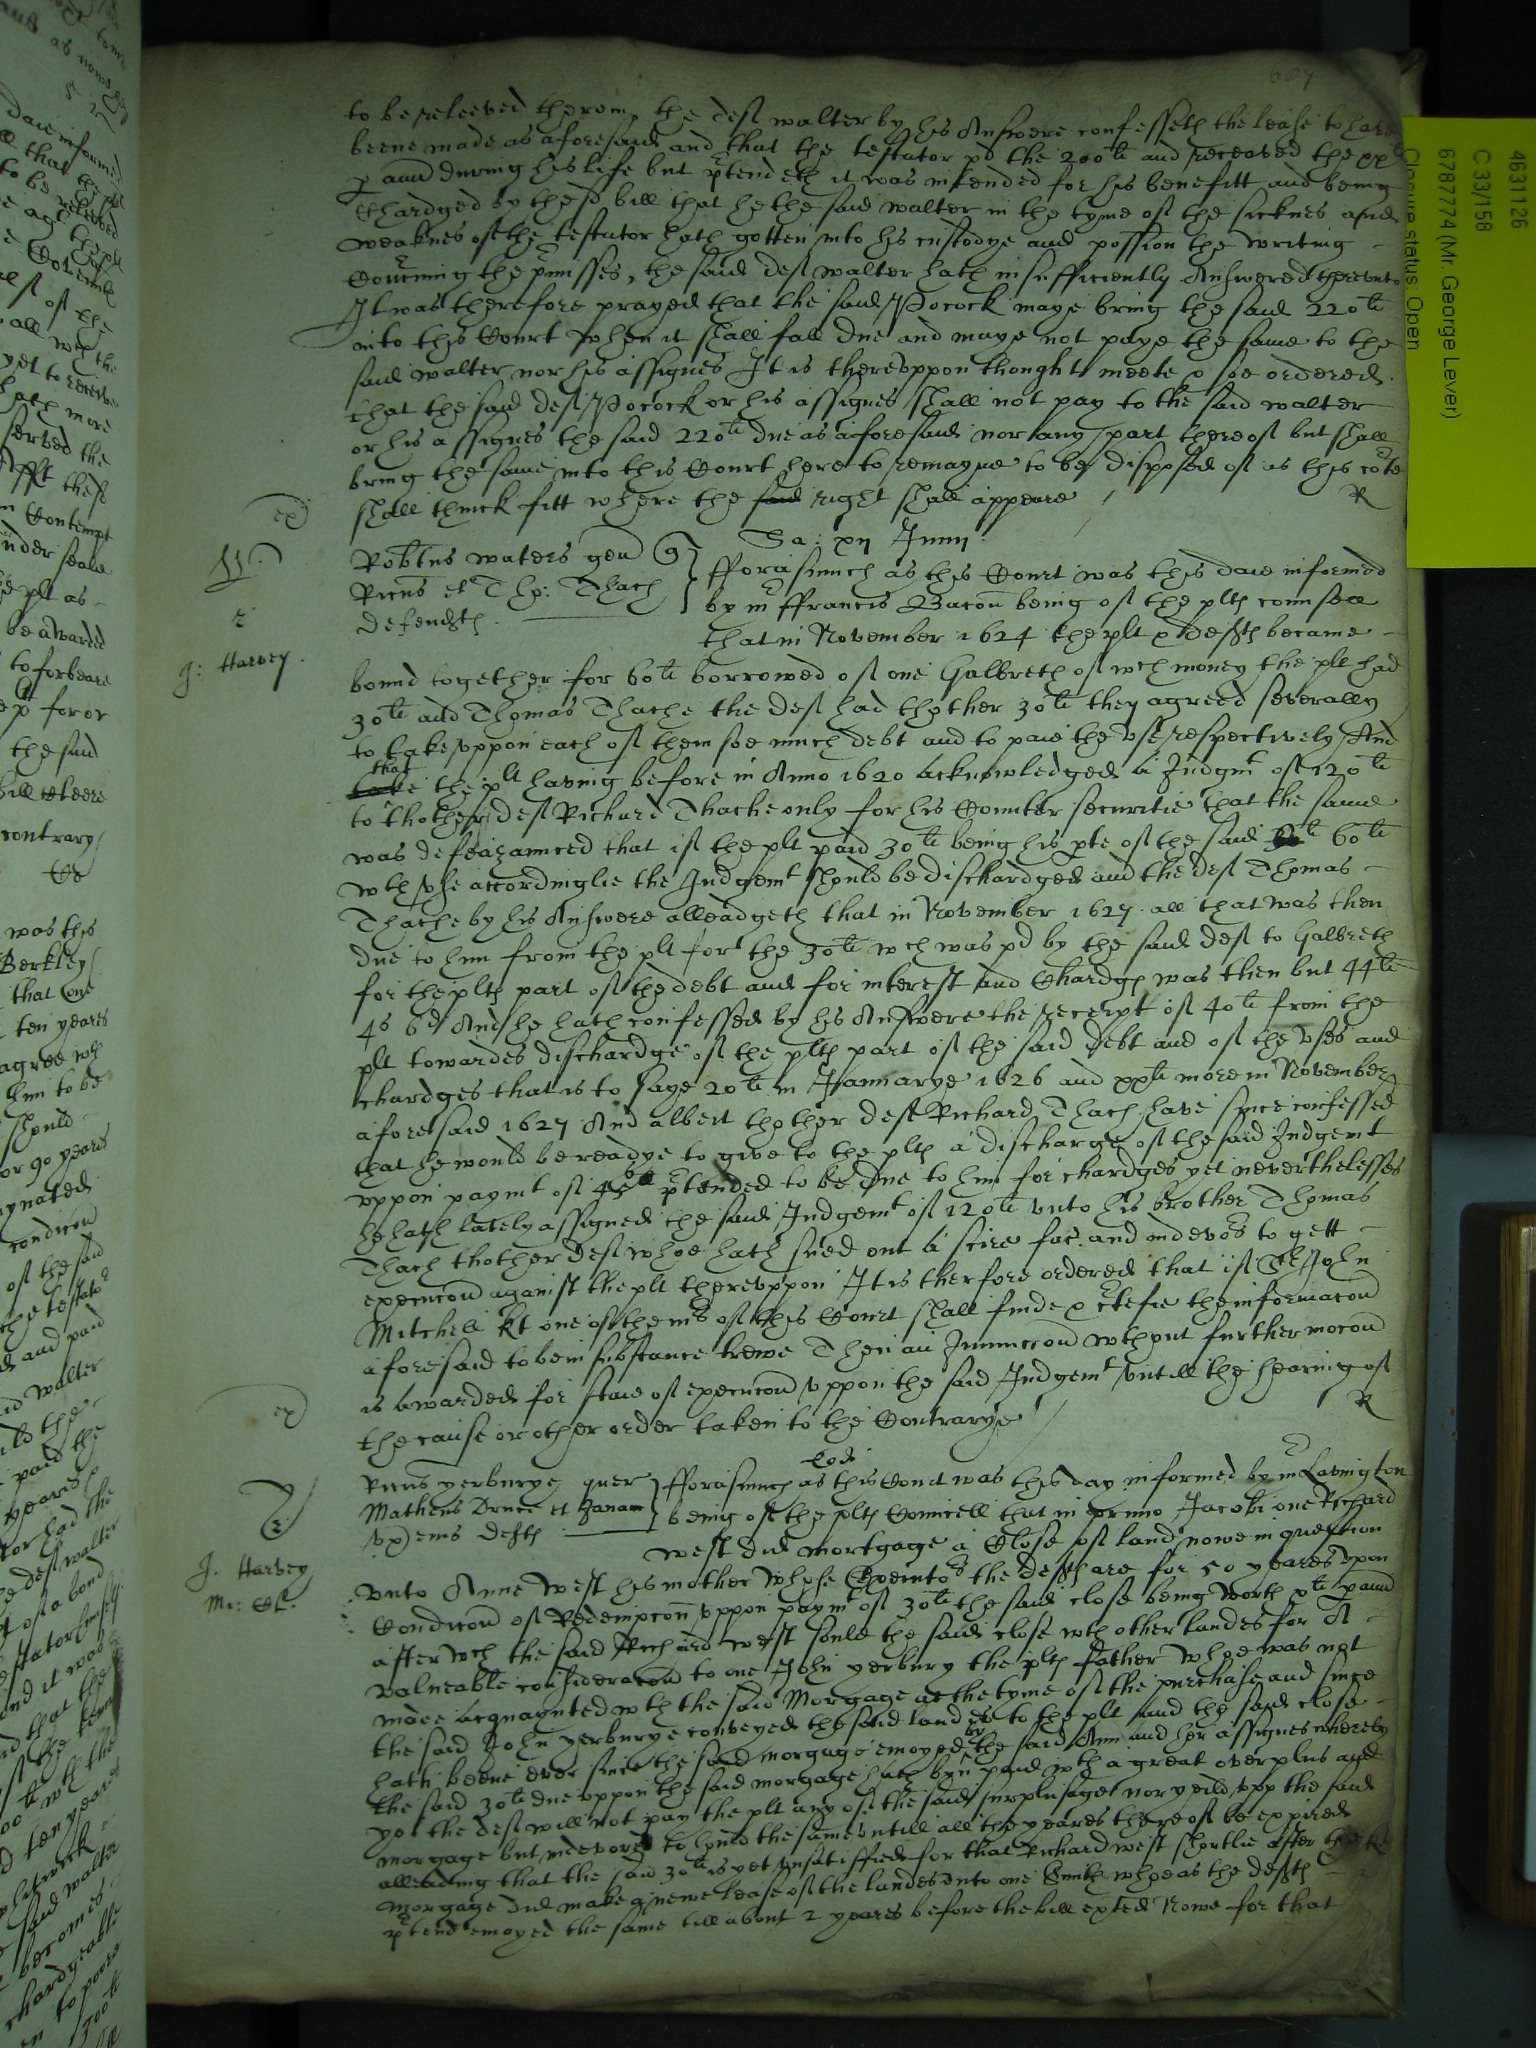 687
to be releeved therein, the deft walter by his Answere confesseth the lease to have
beene made as aforesaid and that the testator pd the 200li and receaved the xxli
p annu during his life but ptendeth it was intended for his benefitt and being
Chardged by the sd bill that he the said walter in the tyme of the sicknes and
weaknes of the testator hath gotten into his custodye and possion the writing
Concerning the pmisses, the said deft walter hath insufficiently Answered therevnto
It was therefore prayed that the said Pocock maye bring the said 220li
into this Court when it shall fall due and maye not paye the same to the
said walter nor his assignes It is therevppon thought meete & soe ordered
that the said deft Pocock or his assignes shall not pay to the said walter
or his assignes the said 220li due as aforesaid nor any part thereof but shall
bring the same into this Court here to remayne to be disposed of as this cote
shall thinck fitt where the said right shall appeare
R
ex
Sa: xij Junij
Robtus waters gen q
Ricus et Tho: Thach
defendtes
J: Harvey
fforasmuch as this Court was this daie informed
by mr ffrancis Bacon being of the plts counsell
that in November 1624 the plt & defts became
bound together for 60li borrowed of one Galbreth of wch money the plt had
30li and Thomas Thache the deft had thother 30li they agreed severally
to take vppon each of them soe much debt and to paie the vse respectively And
that the plt having before in Anno 1620 acknowledged a Judgmt of 120li
to thother deft Richard Thache only for his Counter securitie that the same
was defeazanced that if the plt paid 30li being his pte of the said 60li
wth vse accordinglie the Judgemt should be dischardged and the deft Thomas
Thache by his Answere alleadgeth that in November 1627 all that was then
due to him from the plt for the 30li wch was pd by the said deft to Galbreth
for the plts part of the debt and for interest and Chardges was then but 44li
4s 6d And he hath confessed by his Answere the receipt of 40li from the
plt towardes dischardge of the plts part of the said debt and of the vses and
chardges that is to saye 20li in Januarye 1626 and xxli more in November
aforesaid 1627 And albeit thother deft Richard Thach have since confessed
that he would be readye to give to the plt a discharge of the said Judgemt
vppon paymt of 45s ptended to be due to him for chardges yet neverthelesse
he hath lately assigned the said Judgemt of 120li vnto his brother Thomas
Thach thother deft whoe hath sued out a scire fac and indevors to gett
execucon against the plt therevppon It is therfore ordered that if Sr John
Mitchell kt one of the mrs of this Court shall finde & certefie the informacon
aforesaid to be in substance trewe Then an Iniunccon wthout further mocon
is awarded for staie of execucon vppon the said Judgemt vntill the hearing of
the cause or other order taken to the Contrarye
R
ex
Eod
Ricus yerburye quer
Matheus Druce et Janam
vxem eius defts
J. Harvey
fforasmuch as this Court was this day informed by mr Lavington
being of the plts Councell that in primo Jacobi one Richard
west did mortgage a Close of land nowe in question
vnto Anne west his mother whose Executors the defts are for 50 yeares vpon
Condicon of Redempcon vppon paymt of 30li the said close being worth xli p annu
after wch the said Richard west sould the said close wth other landes for A
valueable consideracon to one John yerbury the plts father whoe was not
made acquaynted wth the said Morgage at the tyme of the purchase and since
the said John yerburye conveyed the said landes to the plt and the said close
hath beene ever since the said morgage enioyed by the said Ann and her assignes whereby
the said 30li due vppon the said morgage hath byn paid wth a great overplus and
yet the deft will not pay the plt any of the said surplusage nor yeild vpp the said
morgage but indevored to hould the same vntill all the yeares thereof be expired
alleadging that the said 30li is yet vnsatisfied for that Richard west shortlie after the
morgage did make a newe lease of the landes vnto one Smith wheras the defts
ptend enioyed the same till about 2 yeares before the bill exted Nowe for that
4631126
C 33/158
6787774 (Mr. George Lever)
Closure status: Open